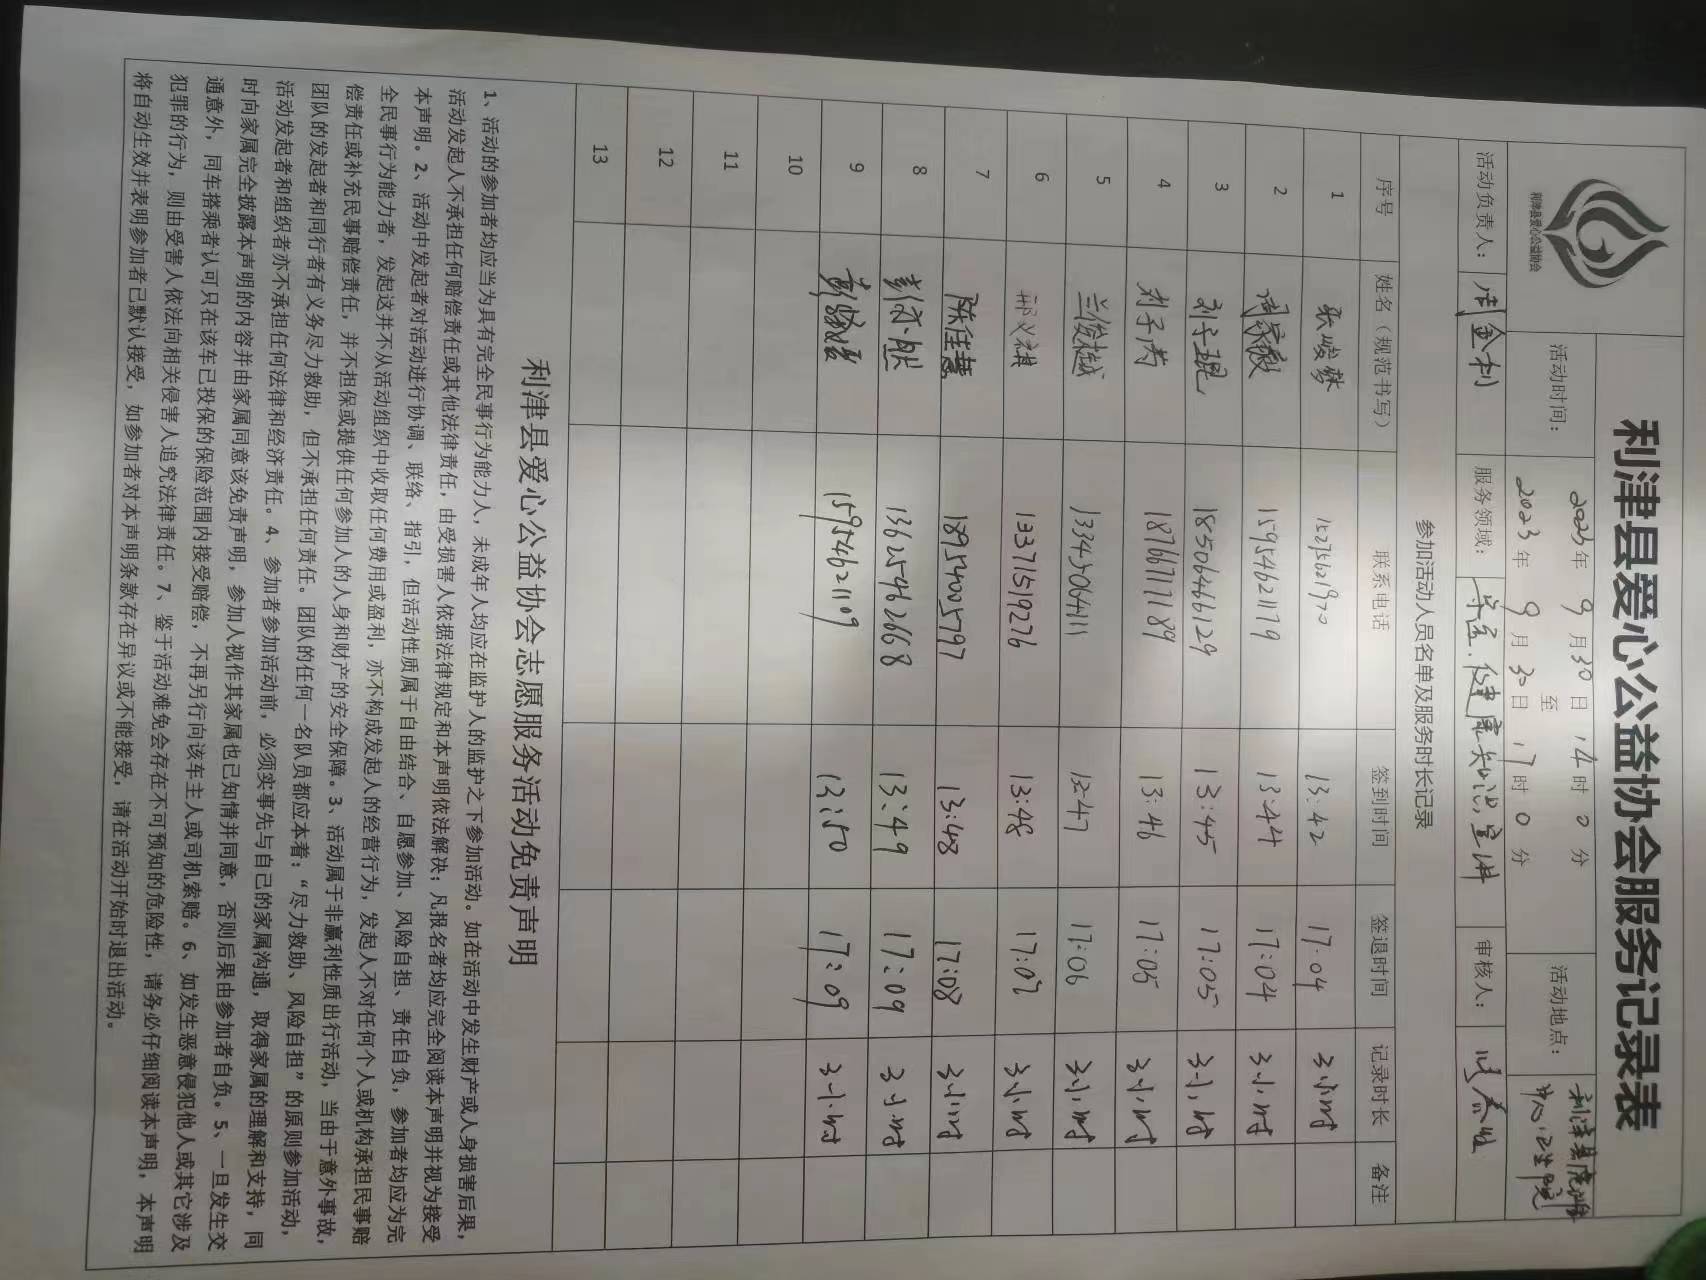 利津县爱心公益协会
利津县爱心公益协会服务记录表
活动时间： 2023年 9月30日 14时 0分 至 2023年 9月30日 17时 0分 活动地点： 利津县 中心卫生院
活动负责人： 周金利 服务领域： 审核人：
参加活动人员名单及服务时长记录
序号 姓名（规范书写） 联系电话 签到时间 签退时间 记录时长 备注
1 张峻梦 15275621970 13:42 17:04 3小时
2 周家毅 15954621179 13:44 17:04 3小时
3 刘子琨 18506466129 13:45 17:05 3小时
4 刘子芮 18766717189 13:46 17:05 3小时
5 兰俊越 13345064111 13:47 17:06 3小时
6 邢义祺 13371519276 13:48 17:07 3小时
7 陈佳慧 18954005797 13:48 17:08 3小时
8 13625462668 13:49 17:09 3小时
9 15954621109 13:50 17:09 3小时
10
11
12
13
利津县爱心公益协会志愿服务活动免责声明
1、活动的参加者均应当为具有完全民事行为能力人，未成年人均应在监护人的监护之下参加活动。如在活动中发生财产或人身损害后果，
活动发起人不承担任何赔偿责任或其他法律责任，由受损害人依据法律规定和本声明依法解决；凡报名者均应完全阅读本声明并视为接受
本声明。2、活动中发起者对活动进行协调、联络、指引，但活动性质属于自由结合、自愿参加、风险自担、责任自负，参加者均应为完
全民事行为能力者，发起这并不从活动组织中收取任何费用或盈利，亦不构成发起人的经营行为，发起人不对任何个人或机构承担民事赔
偿责任或补充民事赔偿责任，并不担保或提供任何参加人的人身和财产的安全保障。3、活动属于非赢利性质出行活动，当由于意外事故，
团队的发起者和同行者有义务尽力救助，但不承担任何责任。团队的任何一名队员都应本着：“尽力救助、风险自担”的原则参加活动，
活动发起者和组织者亦不承担任何法律和经济责任。4、参加者参加活动前，必须实事先与自己的家属沟通，取得家属的理解和支持，同
时向家属完全披露本声明的内容并由家属同意该免责声明，参加人视作其家属也已知情并同意，否则后果由参加者自负。5、一旦发生交
通意外，同车搭乘者认可只在该车已投保的保险范围内接受赔偿，不再另行向该车主人或司机索赔。6、如发生恶意侵犯他人或其它涉及
犯罪的行为，则由受害人依法向相关侵害人追究法律责任。7、鉴于活动难免会存在不可预知的危险性，请务必仔细阅读本声明，本声明
将自动生效并表明参加者已默认接受，如参加者对本声明条款存在异议或不能接受，请在活动开始时退出活动。